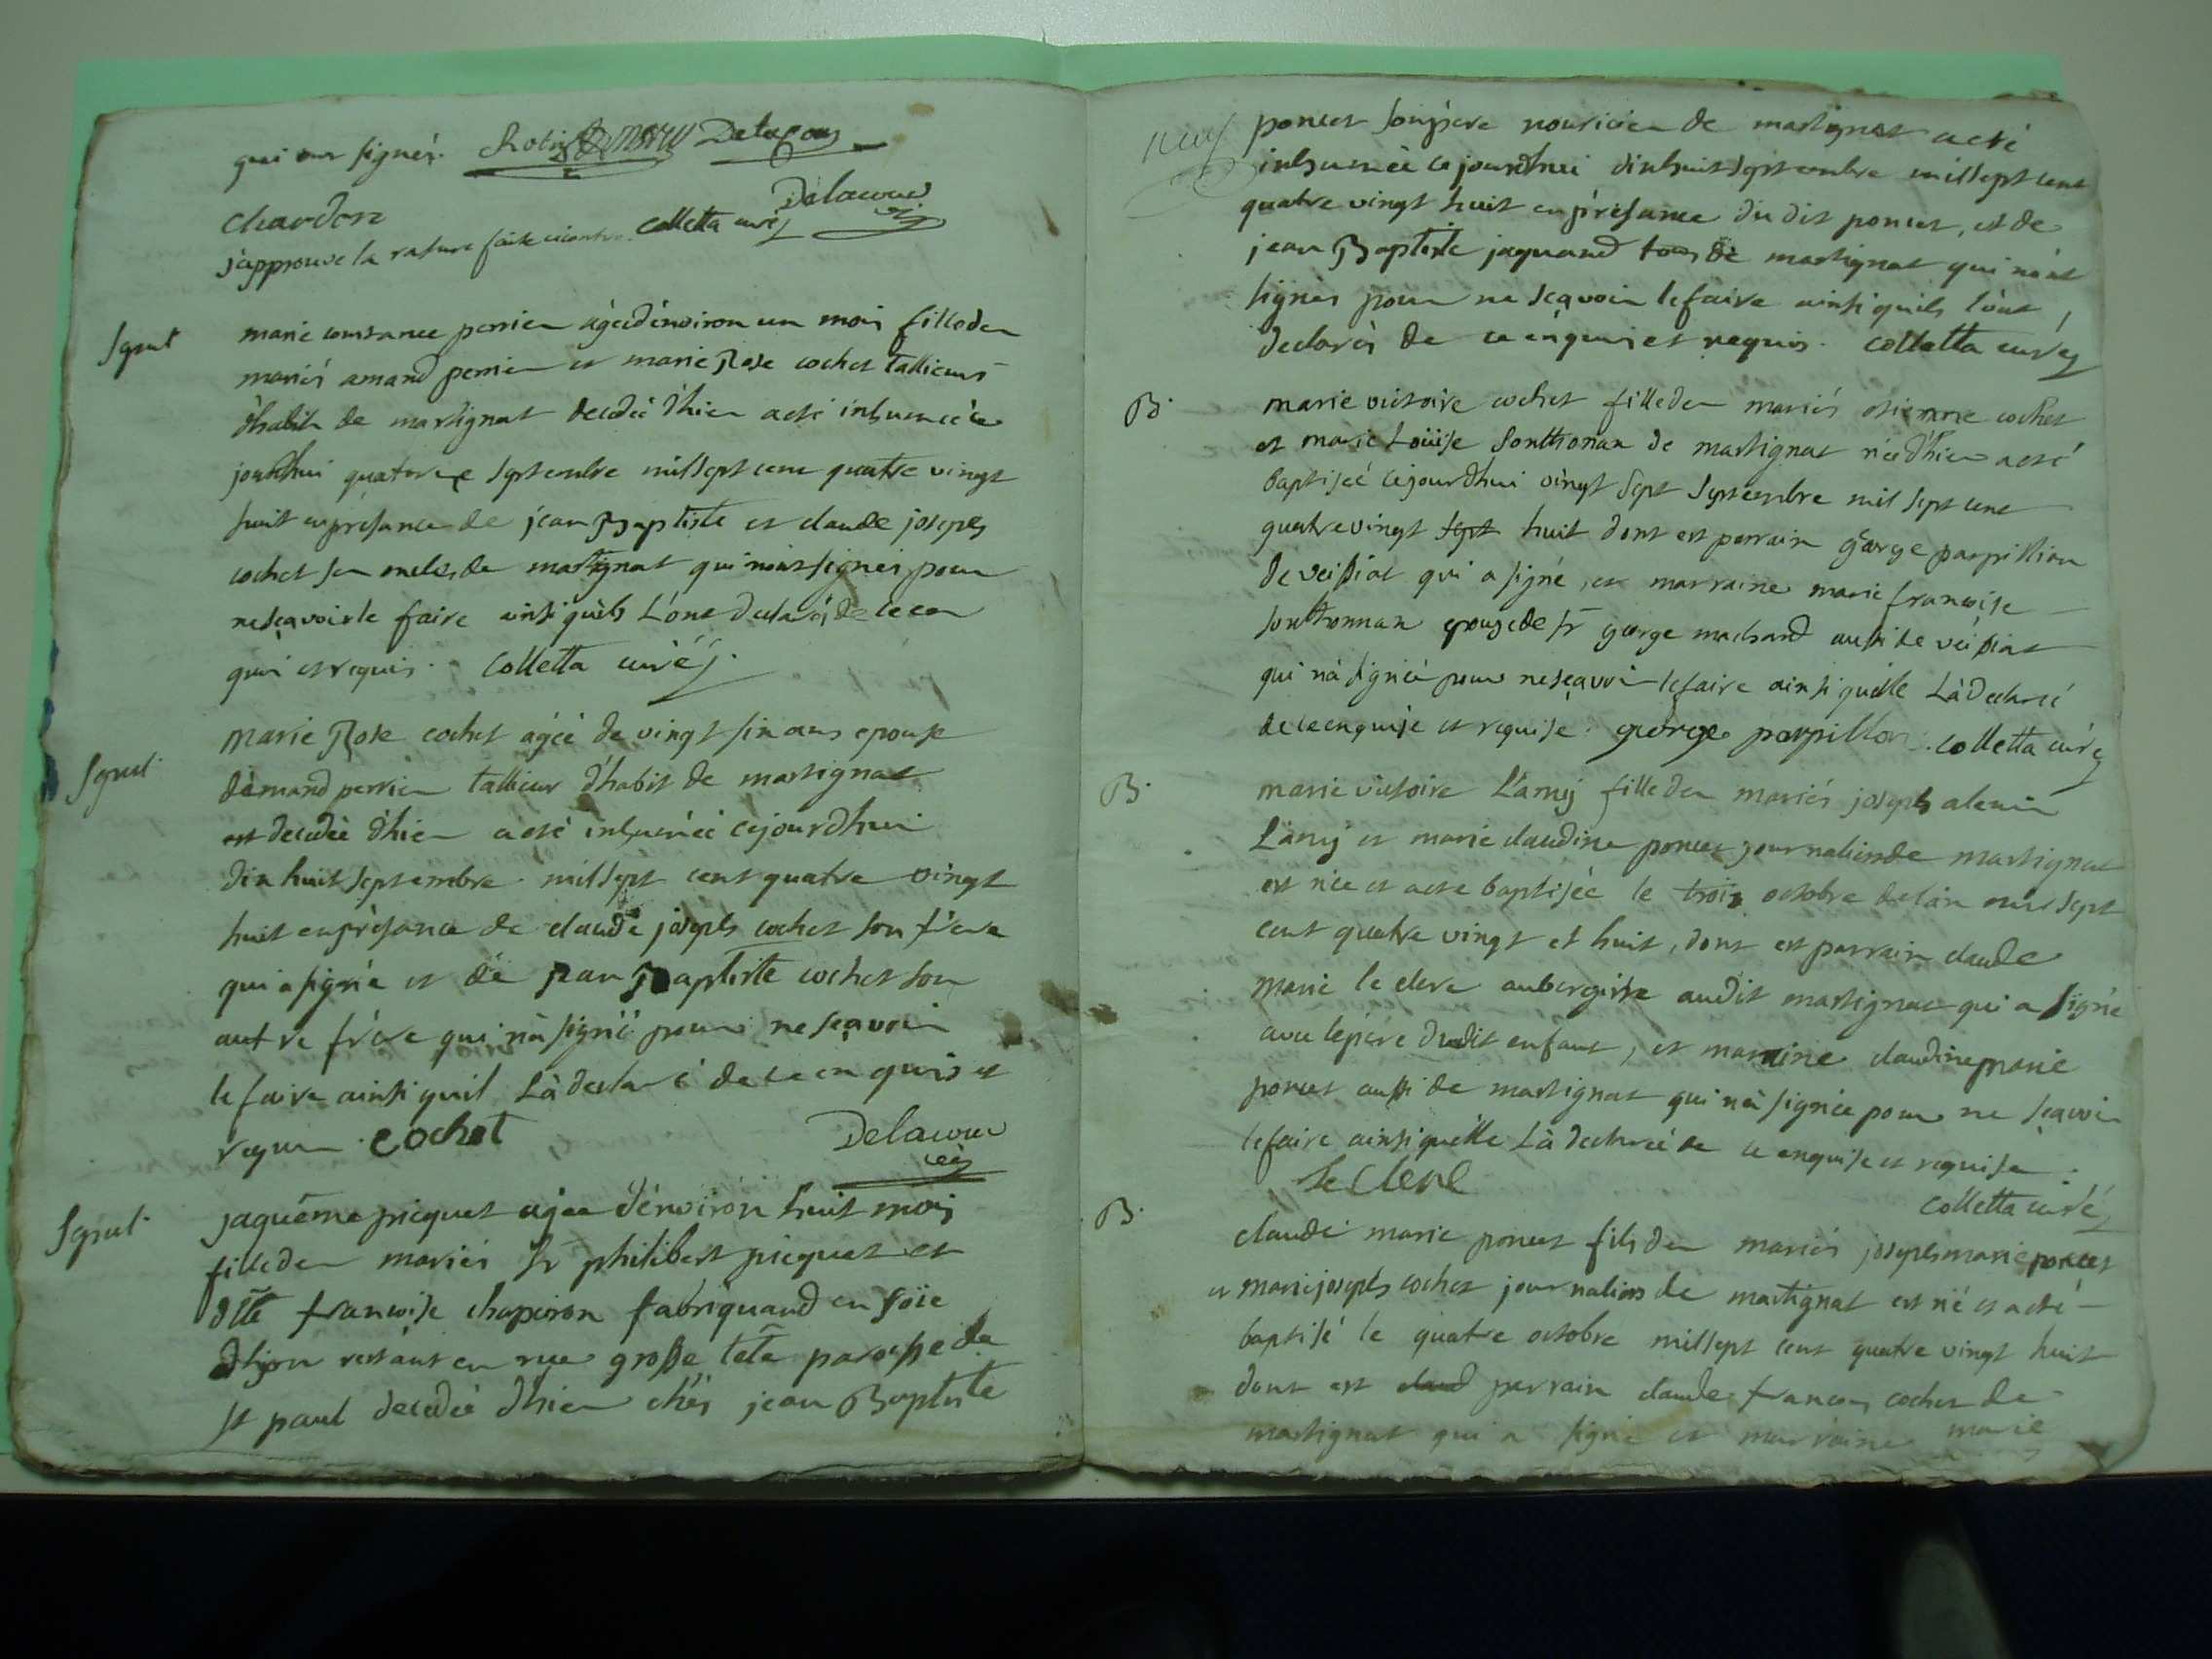 qui ont signés.
Delacour
chardon
j'approuve la rature faite colletta curé
Delacour
Sepult
marie constance perrier agée d'environ un mois fille des
mariés amand perrier et marie Rose cochet tallieurs
d'habits de martignat decedée d'hier a eté inhumée ce
jourdhui quatorze septembre mil sept cent quatre vingt
huit en présance de jean Baptiste et claude joseph
cochet ses oncles de martignat qui n'ont signés pour
ne sçavoir le faire ainsi quils L'ont declarés de ce en
quis et requis. colletta curé
Sepult.
marie Rose cochet agée de vingt six ans epouse
d'amand perrier tallieur d'habit de martignat
est decedée d'hier a eté inhumée cejourdhui
dix huit septembre mil sept cent quatre vingt
huit en présance de claude joseph cochet son frère
qui a signé et de jean Baptiste cochet son
autre frère qui n'a signé pour ne sçavoir
le faire ainsi quil L'a declaré de ce en quis et
requis. cochet Delacour
Sepult.
jaquême picquet agée d'environ huit mois
fille des mariés Sr philibert picquet et
dlle francoise chaperon fabriquand en soie
restant en rue grosse tête paroisse de
St paul decedée d'hier chés jean Baptiste
poncet son père nouricier de martignat a eté
inhumée ce jourdhui dixhuit septembre mil sept cent
quatre vingt huit en présance du dit poncet, et de
jean Baptiste jaquand tous de martignat qui n'ont
signés pour ne sçavoir le faire ainsi quils l'ont
declarés de ce enquis et requis. colletta curé
B.
marie victoire cochet fille des mariés etienne cochet
et marie Loüise Sonthonax de martignat née d'hier a eté
baptisée cejourdhui vingt sept septembre mil sept cent
quatre vingt sept huit dont est parrain george parpillon
de veisiat qui a signé, et marraine marie francoise
sonthonnax epouse de Sr george machard aussi de veisiat
qui n'a signée pour ne sçavoir le faire ainsi quelle L'a declaré
de ce enquise et requise. george parpillon. colletta curé
B.
marie victoire L'amy fille des mariés joseph alexis
L'amy et marie claudine poncet journaliers de martignat
est née et a eté baptisée le trois octobre de l'an mil sept
cent quatre vingt et huit, dont est parrain claude
marie le clerc aubergiste audit martignat qui a signé
avec le père dudit enfant, et marraine claudine marie
poncet aussi de martignat qui n'a signée pour ne sçavoir
le faire ainsi quelle L'a declarée de ce enquise et requise.
Le Clerc
colletta curé
B.
claude marie poncet fils des mariés joseph marie poncet
et marie joseph cochet journaliers de martignat est né et a eté
baptisé le quatre octobre mil sept cent quatre vingt huit
dont est claud parrain claude francois cochet de
martignat qui a signé et marraine marie